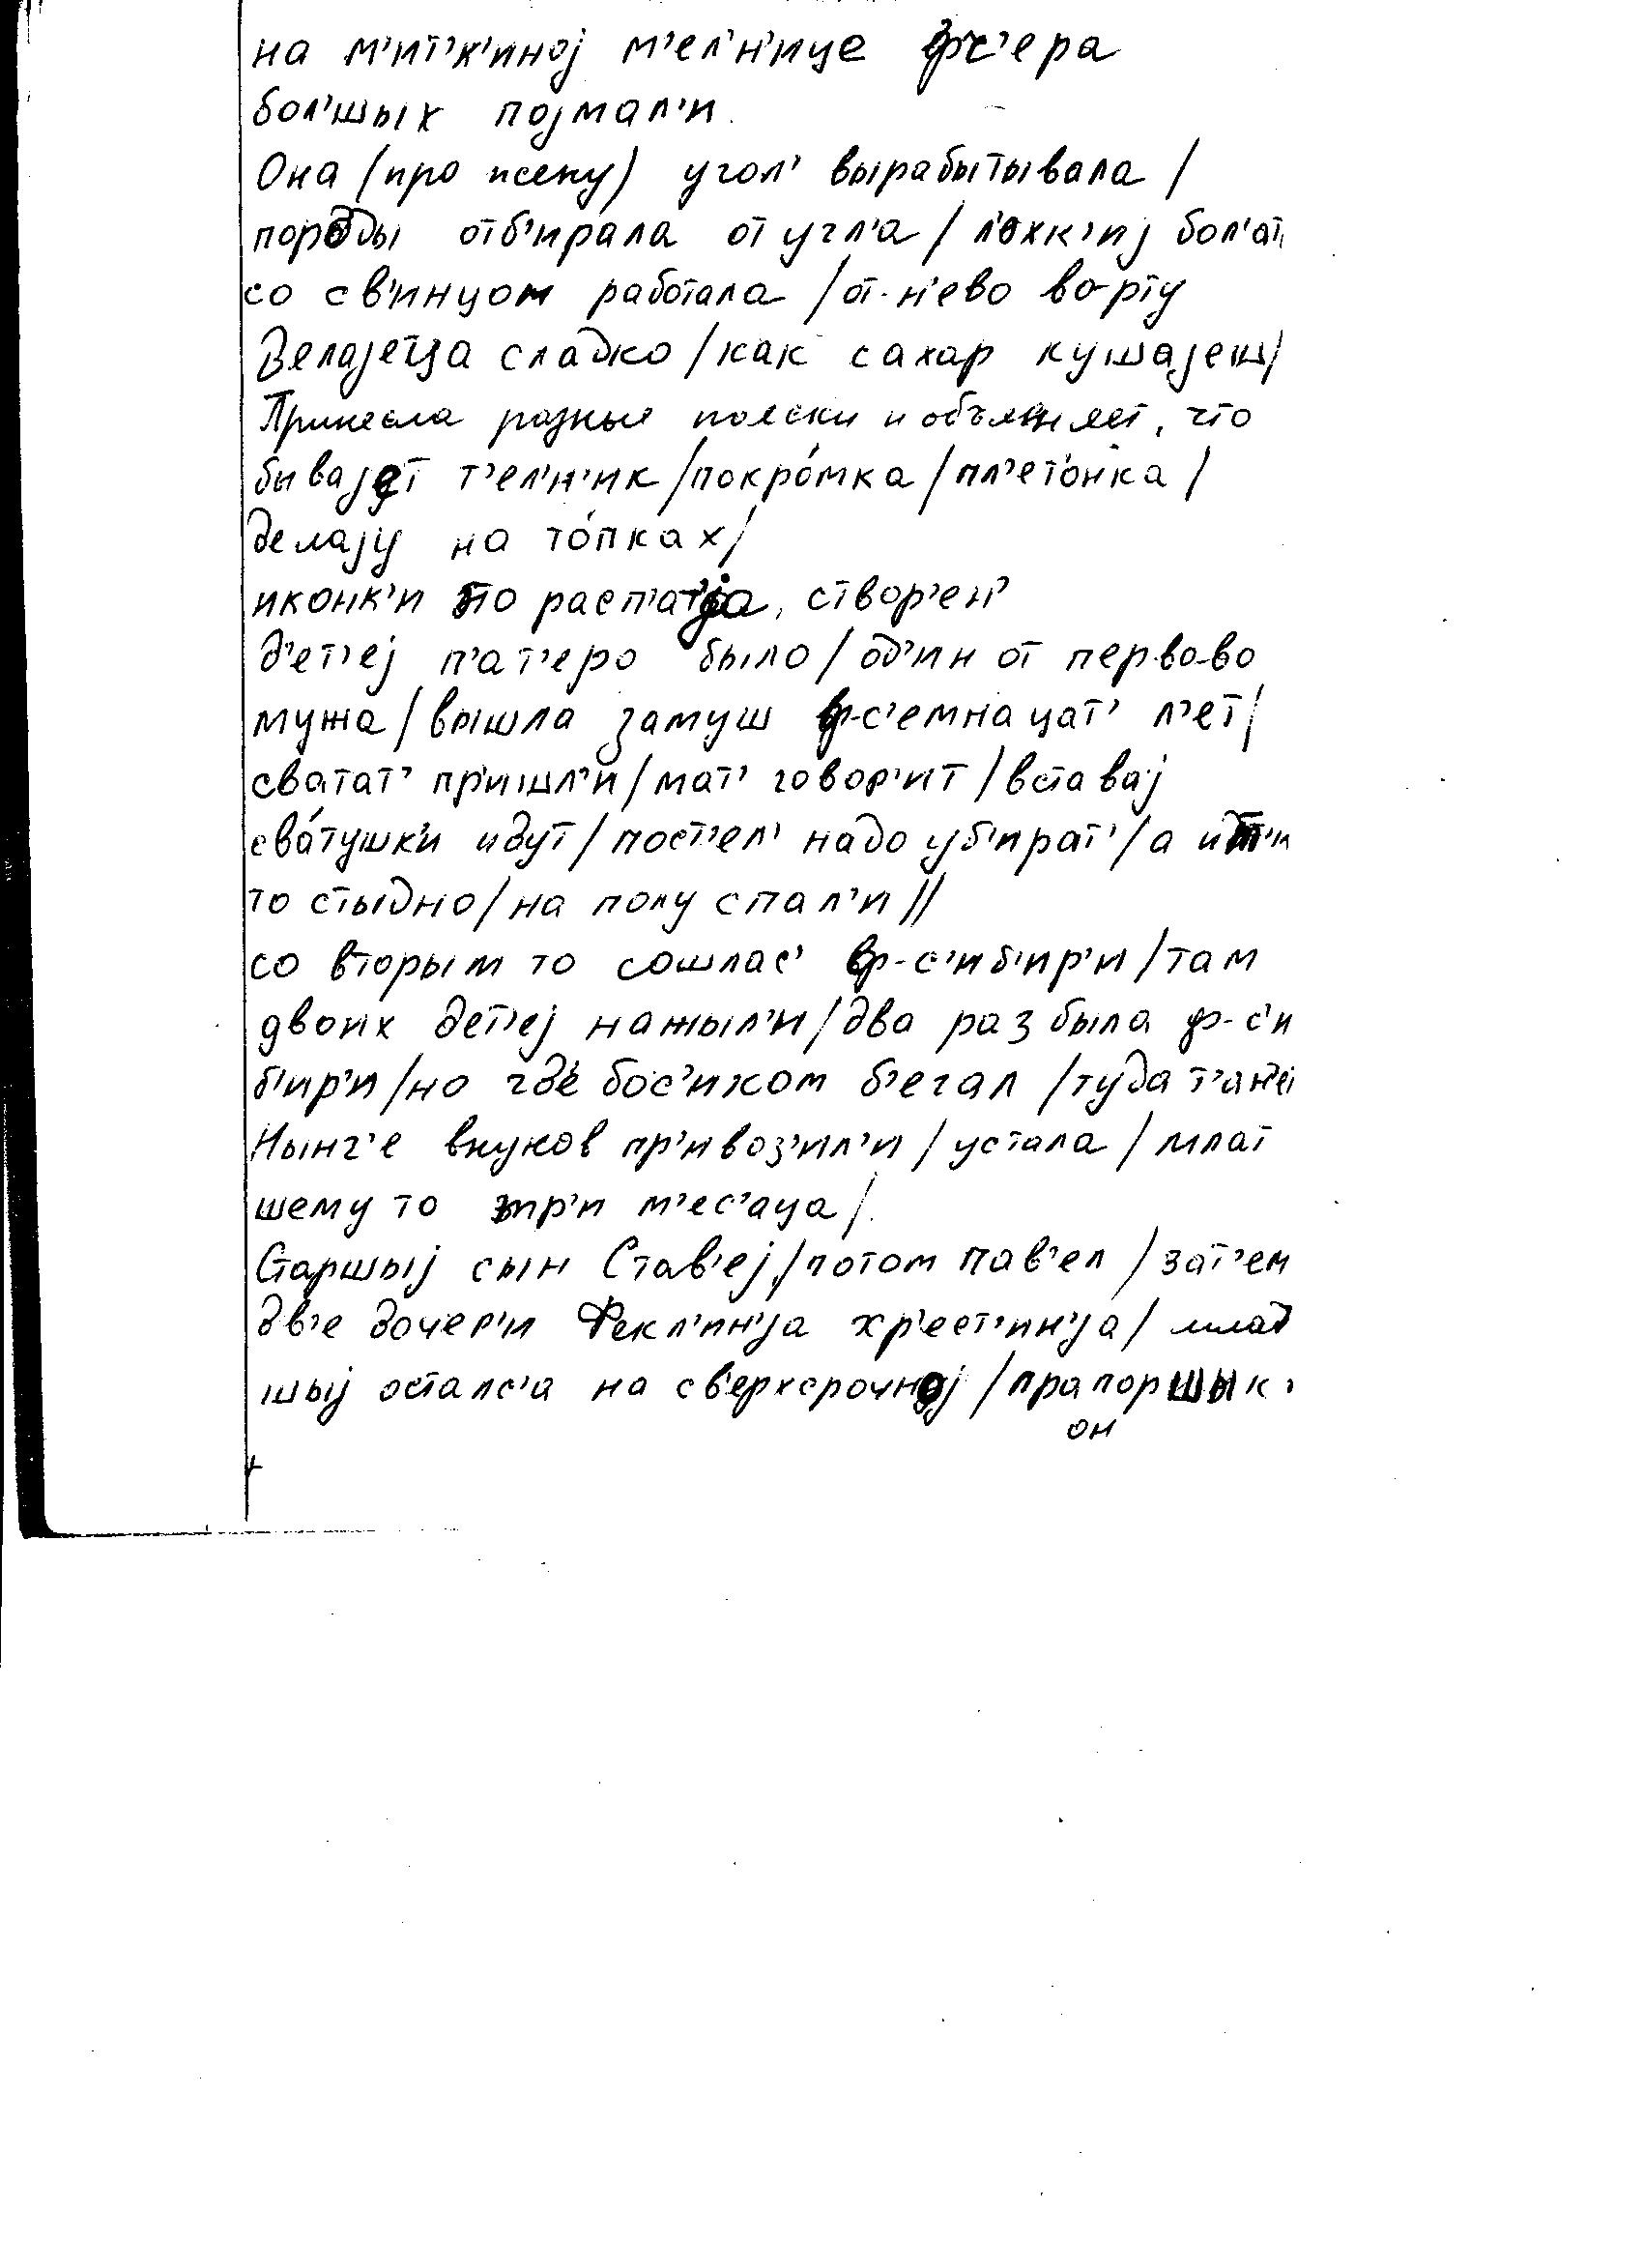 на м'ит'к'иноj м'ел'н'ице фч'ера
бол'шых поjмал'и.
Она (про жену) угол' вырабытывала /
породы отб'ирала от угл'а / л'охк'иj бол'ат
со св'инцом работала / от-н'ево во-рту
делаjетца сладко / как сахар кушаjеш /
Принесла разные пояски и объясняет, что
бываjет т'ел'н'ик / покро́мка / пл'ет'о́нка /
делаjу на то́пках /
иконк'и то расп'ат'jа, створ'ен'
д'ет'еj п'ат'еро было / од'ин от перво-во
мужа / вышла замуш ф-с'емнацат' л'ет /
сватат' пр'ишл'и / мат' говор'ит / вставаj
сва́тушк'и идут / пост'ел' надо уб'ират' / а ит'и
то стыдно / на полу спал'и //
со вторым то сошлас' ф-с'иб'ир'и / там
двоих дет'еj нажыл'и / два раз была ф-с'и
б'ир'и / но где бос'иком б'егал / туда т'ан'ет
Нынч'е внуков пр'ивоз'ил'и / устала / млат
шему то тр'и м'ес'аца /.
Старшыj сын Став'еj / потом Пав'ел / зат'ем
дв'е дочер'и Фекл'ин'jа хр'ест'ин'jа / млат
шыj осталс'а на св'ерхсрочноj / прапоршык
он